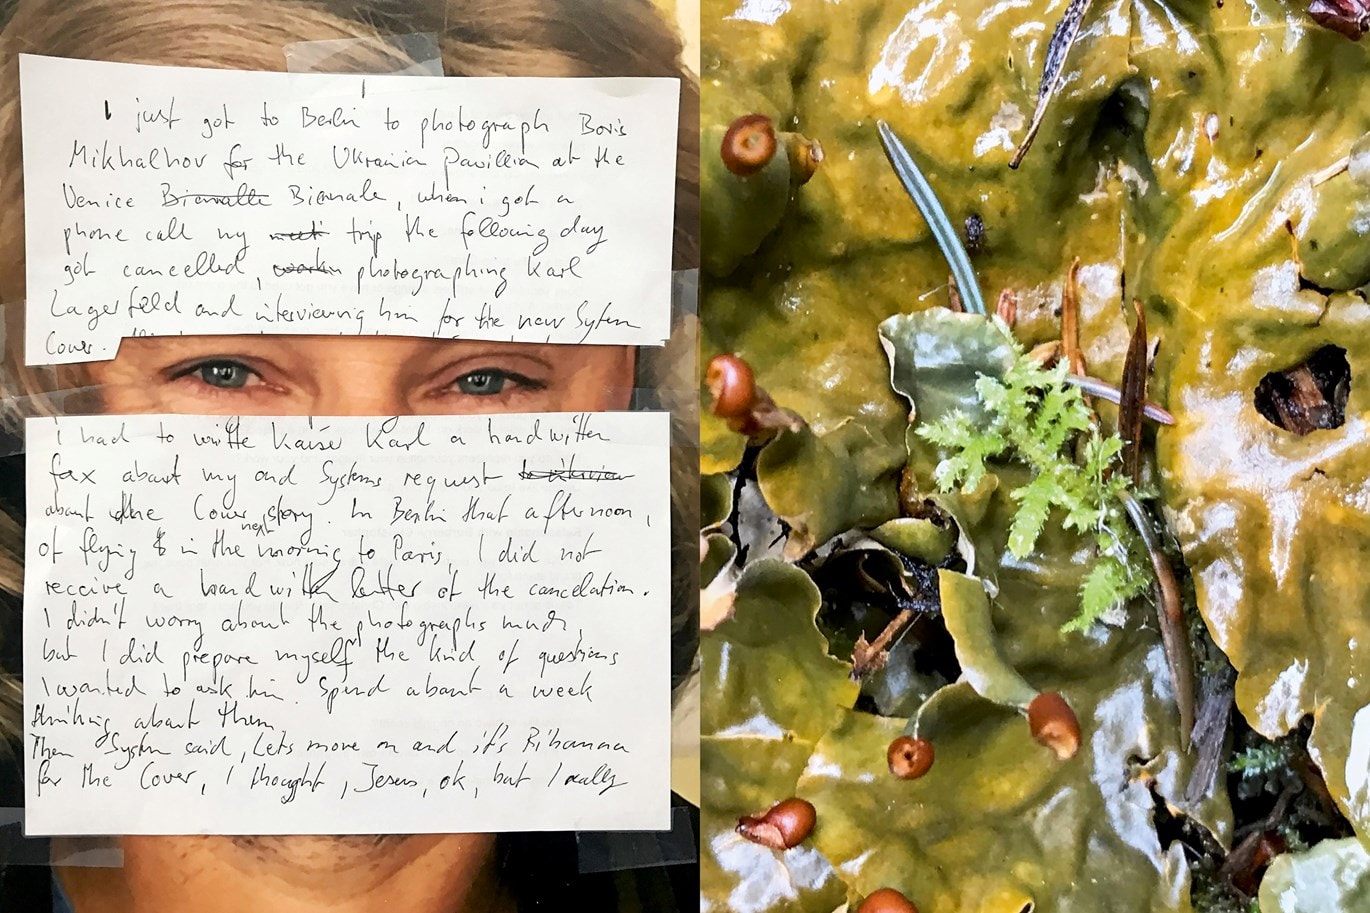 I just got to Berlin to photograph Boris
Mikhalhov for the Ukrainian Pavillion at the
Venice Biennalle Biennale, when i got a
phone call my trip the following day
got cancelled, photographing Karl
Lagerfeld and interviewing him for the new System
Cover.
i had to writte Kaiser Karl a handwitten
fax about my and Systems request to interview
about the Cover story. In Berlin that afternoon,
of flying in the next morning to Paris, I did not
receive a handwitten letter of the cancelation.
I didn't worry about the photographs much,
but I did prepare myself the kind of questions
I wanted to ask him. Spend about a week
thinking about them
Then System said, Lets move on and it's Rihanna
for the Cover, I thought, Jesus, ok, but I really